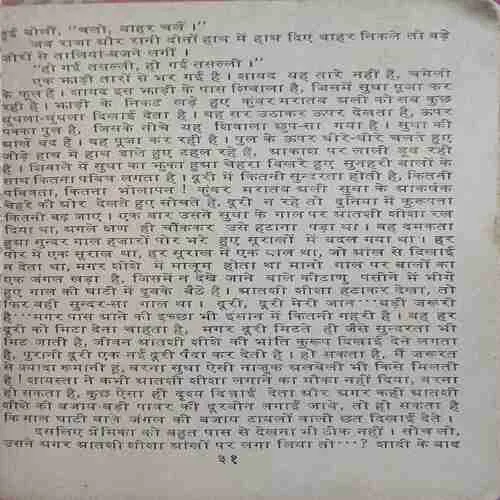 हुई बोलीं, "चलो, बाहर चलें ।"
जब राजा और रानी दोनों हाथ में हाथ दिए बाहर निकले तो बड़े
जोरों से तालियां बजने लगीं ।
"हो गई तसल्ली, हो गई तसल्ली ।"
एक झाड़ी तारों से भर गई है । शायद यह तारे नहीं है, चमेली
के फूल हैं । शायद इस झाड़ी के पास शिवाला है, जिसमें सुधा पूजा कर
रही है । झाड़ी के निकट खड़े हुए कुंवर मरातब अली को सब कुछ
धुंधला-धुंधला दिखाई देता है । वह सर उठाकर ऊपर देखता है, ऊपर
पक्का पुल है, जिसके नीचे यह शिवाला छुप-सा गया है । सुधा की
आंखें बंद हैं । वह पूजा कर रही है । पुल के ऊपर धीरे-धीरे चलते हुए
जोड़े हाथ में हाथ डाले हुए टहल रहे हैं, आकाश पर लाली डूब रही
है । शिवाले में सुधा का झुका हुआ चेहरा बिखरे हुए सुनहरी बालों के
साथ कितना पवित्र लगता है । दूरी में कितनी सुन्दरता होती है, कितनी
पवित्रता, कितना भोलापन ! कुंवर मरातब अली सुधा के आकर्षक
चेहरे की ओर देखते हुए सोचते हैं, दूरी न रहे तो दुनिया में कुरूपता
कितनी बढ़ जाए । एक बार उसने सुधा के गाल पर आतशी शीशा रख
दिया था, अगले क्षण ही चौंककर उसे हटाना पड़ा था । वह दमकता
हुआ सुन्दर गाल हजारों पोर भरे हुए सूराखों में बदल गया था । हर
पोर में एक सूराख था, हर सूराख में एक बाल था, जो आंख से दिखाई
न देता था, मगर शीशे में मालूम होता था मानो गाल पर बालों का
एक जंगल खड़ा है, जिसमें न देखे जाने वाले कीटाणु पसीने में भीगे
हुए गाल की घाटी में दुबके बैठे हैं । आतशी शीशा हटाकर देखा, तो
फिर वही सुन्दर-सा गाल था । दूरी, दूरी मेरी जान···बड़ी जरूरी
है···मगर पास आने की इच्छा भी इंसान में कितनी गहरी है । वह हर
दूरी को मिटा देना चाहता है, मगर दूरी मिटते ही जैसे सुन्दरता भी
मिट जाती है, जीवन आतशी शीशे की भांति कुरूप दिखाई देने लगता
है, पुरानी दूरी एक नई दूरी पैदा कर देती है । हो सकता है, मैं जरूरत
से ज्यादा रूमानी हूं, वरना सुधा ऐसी नाजुक अलबेली भी किसे मिलती
है ! शायस्ता ने कभी आतशी शीशा लगाने का मौका नहीं दिया, वरना
हो सकता है, कुछ ऐसा ही दृश्य दिखाई देता और अगर कहीं आतशी
शीशे की बजाय बड़ी पावर की दूरबीन लगाई जाये, तो हो सकता है
कि गाल घाटी वाले जंगल की बजाय टायलों वाली छत दिखाई देने ।
इसलिए प्रेमिका को बहुत पास से देखना भी ठीक नहीं । सोच लो,
उसने अगर आतशी शीशा आंखों पर लगा लिया तो···? शादी के बाद
३१